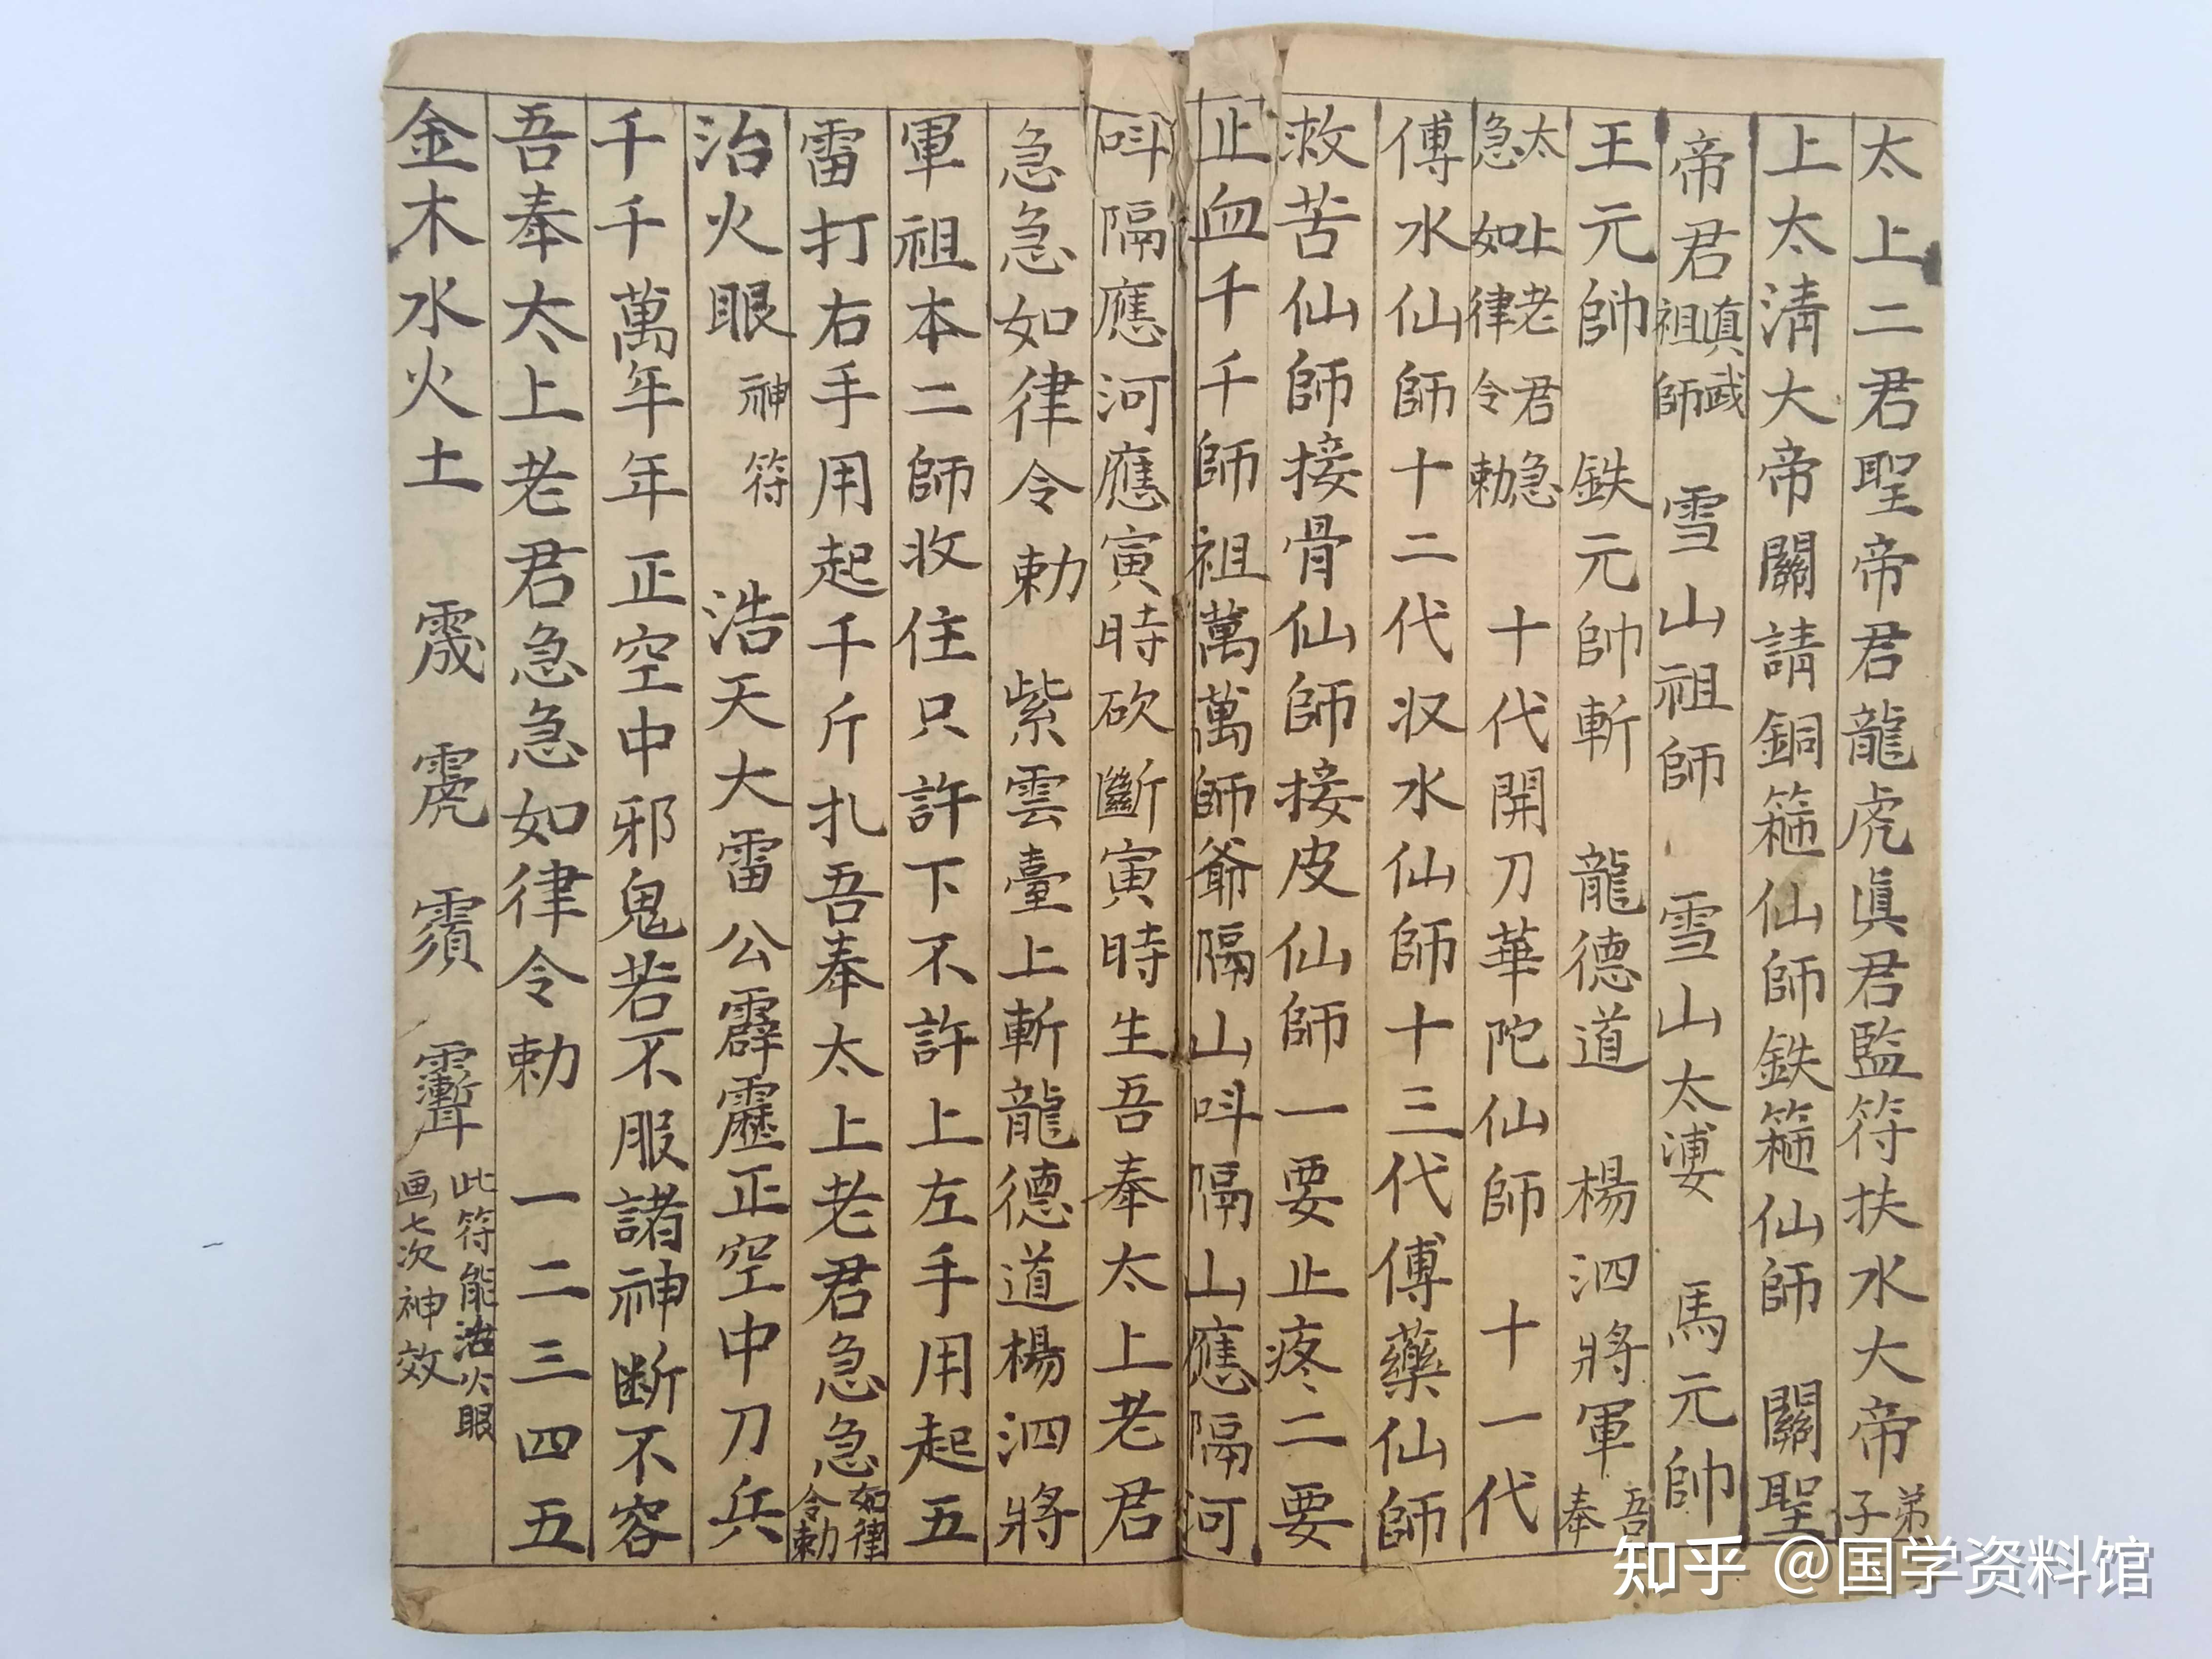 太上二君聖帝君龍虎眞君監符扶水大帝弟子
上太清大帝關請銅箍仙師鉄箍仙師 關聖
帝君眞武祖師 雪山祖師 雪山太婆 馬元帥
王元帥 鉄元帥斬 龍德道 楊泗將軍吾奉
太上老君急急如律令勅 十代開刀華陀仙師 十一代
傅水仙師十二代収水仙師十三代傅藥仙師
救苦仙師接骨仙師接皮仙師一要止疼二要
止血千千師祖萬萬師爺隔山呌隔山應隔河
呌隔應河應寅時砍斷寅時生吾奉太上老君
急急如律令勅 紫雲臺上斬龍德道楊泗將
軍祖本二師收住只許下不許上左手用起五
雷打右手用起千斤扎吾奉太上老君急急如律令勅
治火眼神符 浩天大雷公霹靂正空中刀兵
千千萬年年正空中邪鬼若不服諸神断不容
吾奉太上老君急急如律令勅 一二三四五
金木水火土 此符能治火眼画七次神效
知乎 @国学资料馆